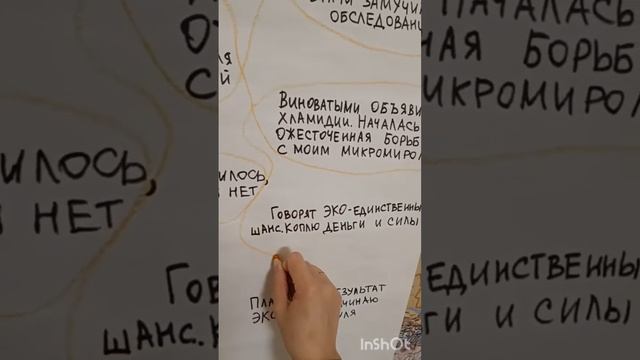 ЗАМУЧИ
ОБСЛЕДОВАН
ВИНОВАТЫМИ ОБЪЯВИ
ХЛАМИДИИ. НАЧАЛАСЬ
ОЖЕСТОЧЕННАЯ БОРЬБ
С МОИМ МИКРОМИРО
ИЛОСЬ,
НЕТ
ГОВОРЯТ ЭКО-ЕДИНСТВЕННЫ
ШАНС. КОПЛЮ ДЕНЬГИ И СИЛЫ
ПЛА ЕЗУЛЬТАТ
ЭКО ЧИНАЮ
ЛЯ
InShOt